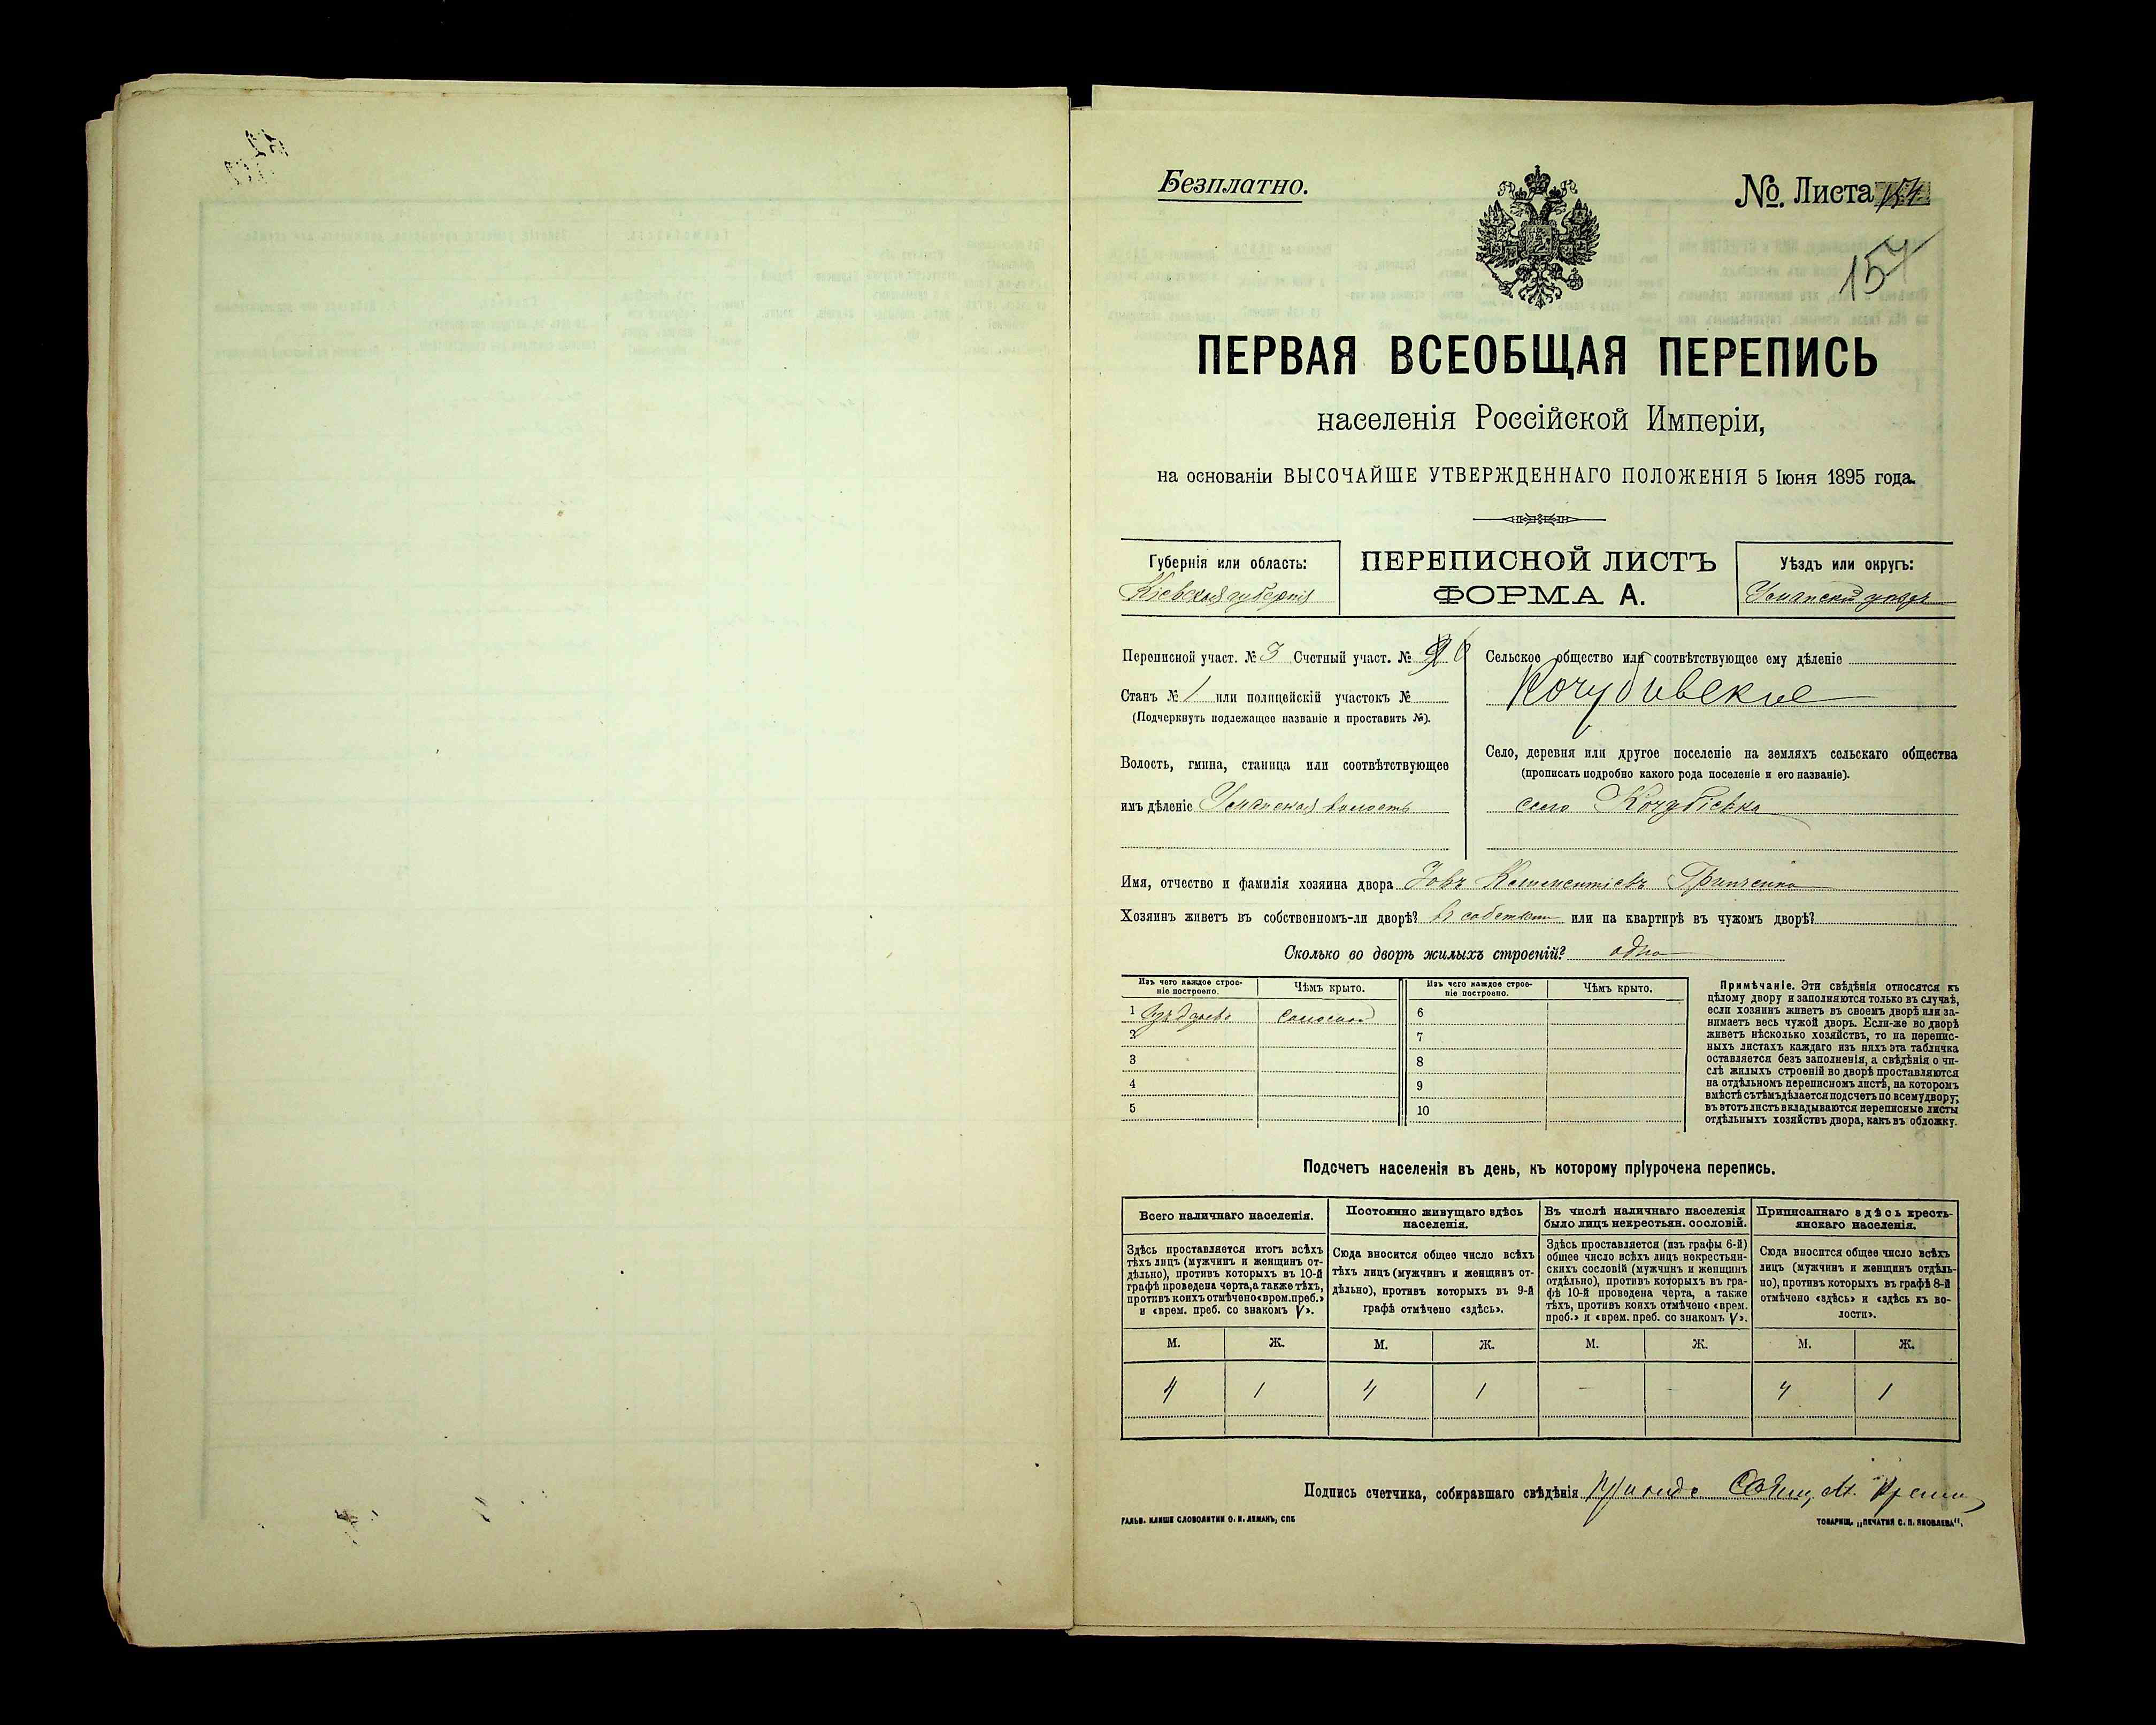 Безплатно.
№ Листа 154
157
ПЕРВАЯ ВСЕОБЩАЯ ПЕРЕПИСЬ
населенія Россійской Имперіи,
на основаніи ВЫСОЧАЙШЕ УТВЕРЖДЕННАГО ПОЛОЖЕНІЯ 5 Іюня 1895 года.
Губернія или область:
Кіевская губернія
ПЕРЕПИСНОЙ ЛИСТЪ
ФОРМА А.
Уѣздъ или округъ:
Уманскій уѣздъ
Переписной участ. № 3 Счетный участ. № 6
Станъ № 1 или полицейскій участокъ №
(Подчеркнуть подлежащее названіе и проставить №).
Волость, гмина, станица или соотвѣтствующее
имъ дѣленіе Уманская волость
Сельское общество или соотвѣтствующее ему дѣленіе
Кочубивское
Село, деревня или другое поселеніе на земляхъ сельскаго общества
(прописать подробно какого рода поселеніе и его названіе).
село Кочубіевка
Имя, отчество и фамилія хозяина двора Іовъ Климентіевъ Гринченко
Хозяинъ живетъ въ собственномъ-ли дворѣ? В собствен или на квартирѣ въ чужомъ дворѣ?
Сколько во дворѣ жилыхъ строеній? одно
Изъ чего каждое строе-
ніе построено.
Чѣмъ крыто.
Изъ чего каждое строе-
ніе построено.
Чѣмъ крыто.
1 Изъ дерева соломой
2
3
4
5
6
7
8
9
10
Примѣчаніе. Эти свѣдѣнія относятся къ
цѣлому двору и заполняются только въ случаѣ,
если хозяинъ живетъ въ своемъ дворѣ или за-
нимаетъ весь чужой дворъ. Если-же во дворѣ
живетъ нѣсколько хозяйствъ, то на перепис-
ныхъ листахъ каждаго изъ нихъ эта табличка
оставляется безъ заполненія, а свѣдѣнія о чи-
слѣ жилыхъ строеній во дворѣ проставляются
на отдѣльномъ переписномъ листѣ, на которомъ
вмѣстѣ съ тѣмъ дѣлается подсчетъ по всему двору;
въ этотъ листъ вкладываются переписные листы
отдѣльныхъ хозяйствъ двора, какъ въ обложку.
Подсчетъ населенія въ день, къ которому пріурочена перепись.
Всего наличнаго населенія.
Здѣсь проставляется итогъ всѣхъ
тѣхъ лицъ (мужчинъ и женщинъ от-
дѣльно), противъ которыхъ въ 10-й
графѣ проведена черта, а также тѣхъ,
противъ коихъ отмѣчено «врем. преб.»
и «врем. преб. со знакомъ V».
Постоянно живущаго здѣсь
населенія.
Сюда вносится общее число всѣхъ
тѣхъ лицъ (мужчинъ и женщинъ от-
дѣльно), противъ которыхъ въ 9-й
графѣ отмѣчено «здѣсь».
Въ числѣ наличнаго населенія
было лицъ некрестьян. сословій.
Здѣсь проставляется (изъ графы 6-й)
общее число всѣхъ лицъ некрестьян-
скихъ сословій (мужчинъ и женщинъ
отдѣльно), противъ которыхъ въ гра-
фѣ 10-й проведена черта, а также
тѣхъ, противъ коихъ отмѣчено «врем.
преб.» и «врем. преб. со знакомъ V».
Приписаннаго здѣсь кресть-
янскаго населенія.
Сюда вносится общее число всѣхъ
лицъ (мужчинъ и женщинъ отдѣль-
но), противъ которыхъ въ графѣ 8-й
отмѣчено «здѣсь» и «здѣсь къ во-
лости».
М. Ж. М. Ж. М. Ж. М. Ж.
4 1 4 1 - - 4 1
Подпись счетчика, собиравшаго свѣдѣнія
ГАЛЬВ. КЛИШЕ СЛОВОЛИТНИ О. И. ЛЕМАНЪ, СПБ
ТОВАРИЩ. „ПЕЧАТНЯ С. П. ЯКОВЛЕВА“.